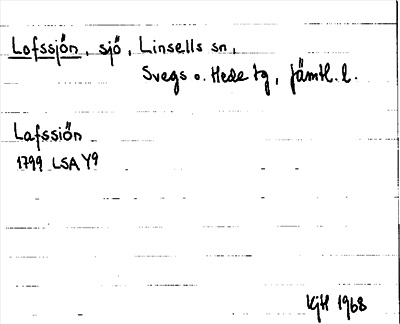 Lofssjön, sjö, Linsells sn,
Svegs o. Hede tg, Jämtl. l.
Lafssiön
1799 LSA Y9
KjH 1968